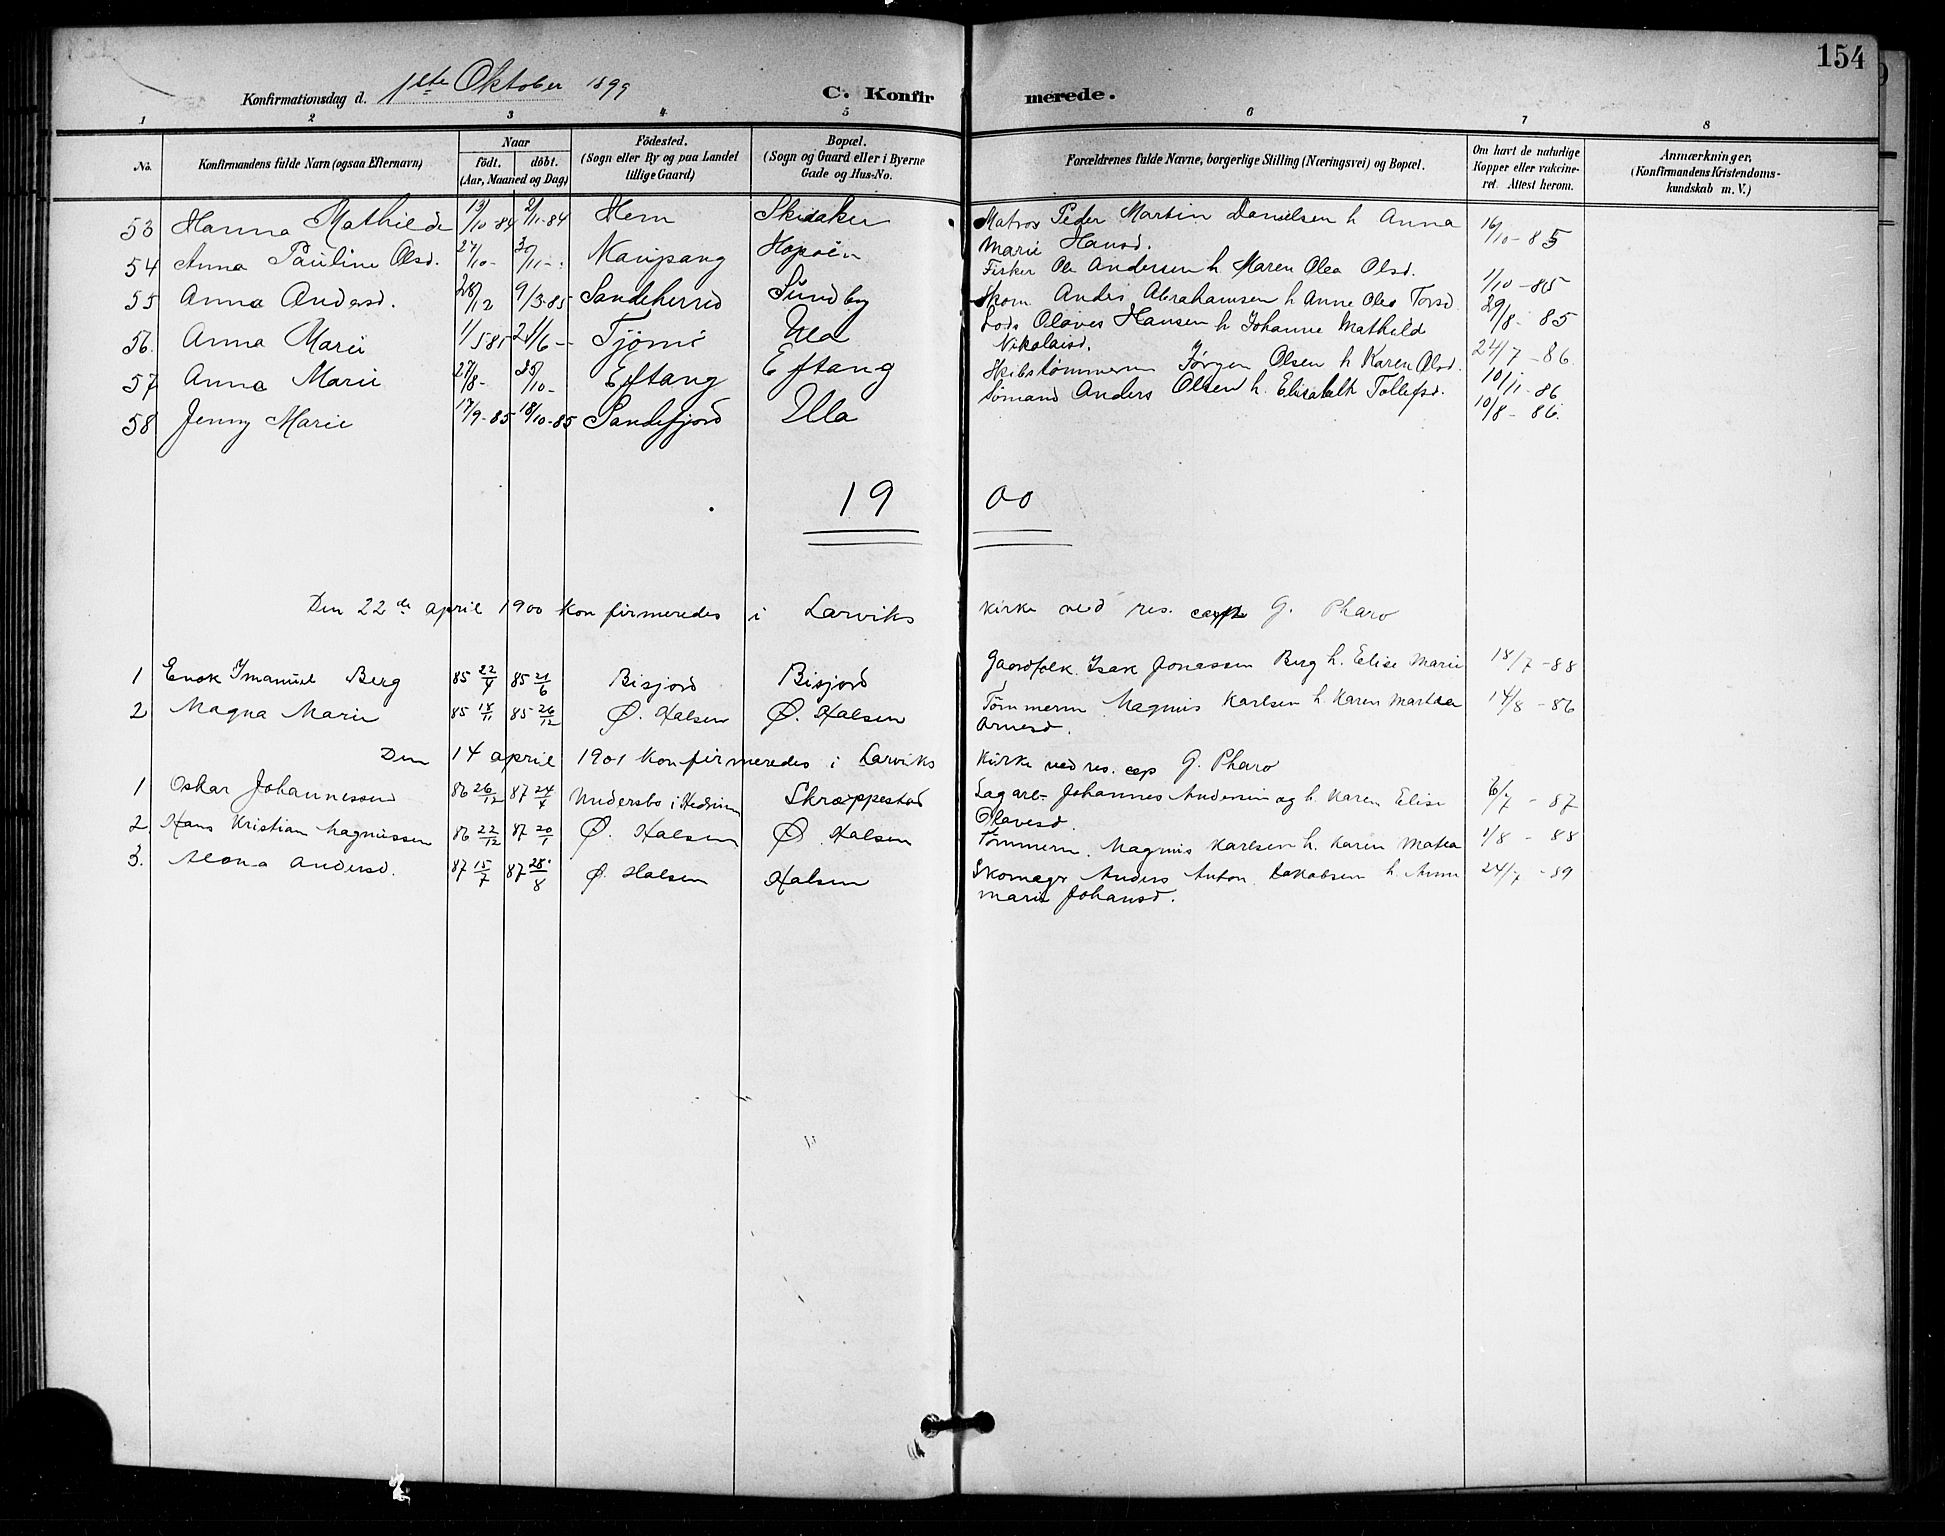 154
Konfirmationsdag d. 1ste Oktober 1899
C. Konfirmerede.
1 2 3 4 5 6 7 8
No.
Konfirmandens fulde Navn (ogsaa Efternavn)
Naar
födt. döbt.
(Aar, Maaned og Dag)
Födested.
(Sogn eller By og paa Landet
tillige Gaard)
Bopæl.
(Sogn og Gaard eller i Byerne
Gade og Hus-No.
Forældrenes fulde Navne, borgerlige Stilling (Næringsvei) og Bopæl.
Om havt de naturlige
Kopper eller vakcine-
ret. Attest herom.
Anmærkninger.
(Konfirmandens Kristendoms-
kundskab m. V.)
53 Hanna Mathilde 13/10-84 2/11-84 Hem Skisaker Matros Peder Martin Danielsen h Anna 16/10-85
Marie Hansd.
54 Anna Pauline Olsd. 27/10- 30/11- Kaupang Hopöen Fisker Ole Andersen h. Maren Olea Olsd. 1/10-85
55 Anna Andersd. 28/12 9/3-85 Sandeherred Sundby Skom Anders Abrahamsen h Anne Olea Torsd 29/8-85
56. Anna Marie 1/5 85 21/6- Tjömö Ula Lods Oløves Hansen h Johanne Mathild
Nikolaisd. 24/7-86
57 Anna Marie 27/8- 25/10- Eftang Eftang Skibstømmerm Jörgen Olsen h Karen Olsd. 10/11-86
58 Jenny Marie 17/9-85 18/10-85 Sandefjord Ula Sömand Anders Olsen h. Elisabeth Tollefsd. 10/8-86.
1900
Den 22de april 1900 konfirmeredes i Larviks kirke ved res. cap G. Pharo
1 Enok Imanuel Berg 85 22/4 85 21/6 Bisjord Bisjord Gaardfolk Isak Jonassen Berg h. Elise Marie 18/7-88
2 Magna Marie 85 18/11 85 26/12 Ø. Halsen Ø. Halsen Tömmerm. Magnus Karlsen h. Karen Marthea 14/8-86
Arnesd.
Den 14 april 1901 konfirmeredes i Larviks kirke ved res. cap G. Pharo
1 Oskar Johannessen 86 26/12 87 24/4 Undersbo i Hedrum Skræppestad Sagarb- Johannes Andersen og h. Karen Elise 6/7-87
Olavesd.
2 Hans Kristian Magnussen 86 22/12 87 20/1 Ø. Halsen Ø. Halsen Tömmerm. Magnus Karlsen h. Karen Matea 1/8-88
3. Alona Andersd. 87 15/7 87 28/8 Ø. Halsen Halsen Skomager Anders Anton Jakobsen h. Anne 24/7-89
Marie Johansd.